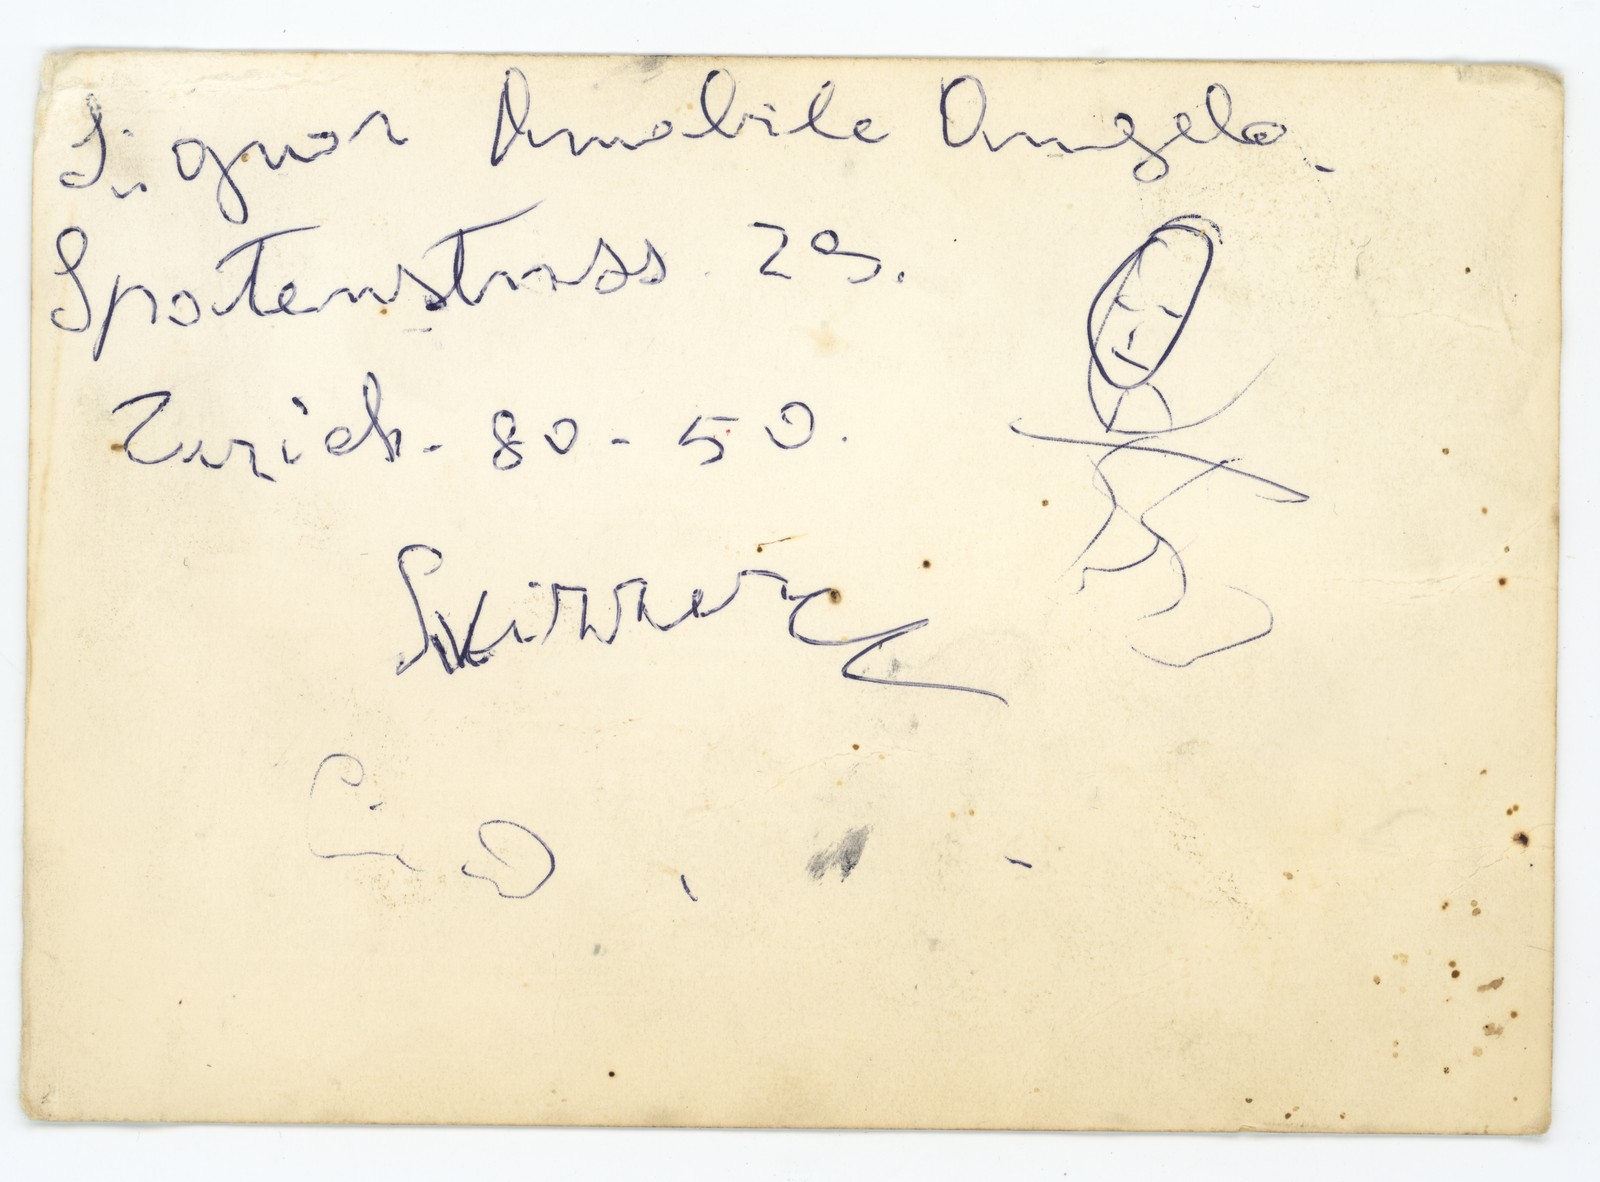 Signor Amabile Angelo.
Spatenstrass. 29.
Zurich - 80 - 50.